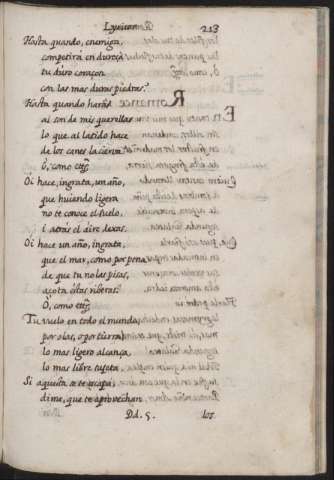 Lyricas. 213
Hasta quando, enemiga,
competirà en dureça
tu duro coraçon
con las mas duras piedras?
Hasta quando harás
al son de mis querellas
lo que al latido hace
de los canes la cierva?
O, como etc.
Oi hace, ingrata, un año,
que huiendo ligera
no te conoce el suelo,
i atras el áire dexas.
Oi hace un año, ingrata,
que el mar, como por pena
de que tu no las pisas,
açota éstas riberas.
O, como etc.
Tu vuelo en todo el mundo,
por olas, o por tierra,
lo mas ligero alcança
lo mas libre sujeta.
Si aquesta se te escapa,
dime, que te aprovechan
Dd. 5. los